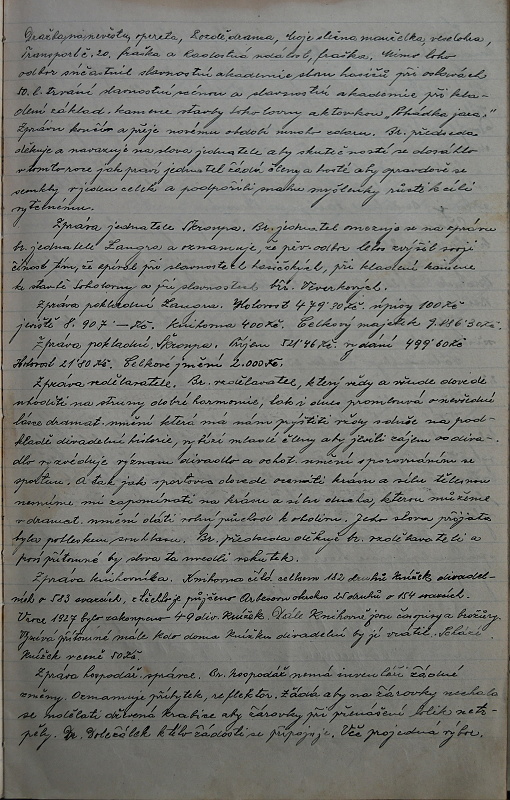 Dražba na nevěstu, opereta, Lozoděj drama, Moje slečna manželka, veselohra,
Transport č. 20. fraška a Radostná událost, fraška. Mimo toho
odbor súčastnil slavnostní akademie sboru hasičů při oslavách
50. l. trvání slavnostní scénou a slavnostní akademie při kla-
dení základ. kamene stavby Sokolovny aktovkou "Pohádka jara."
Zprávu končím a přeje novému období mnoho zdaru. Br. předseda
děkuje a navazuje na slova jednatele aby skutečnosti se dosáhlo
v tomto roce jak praví jednatel žádá členy a hosté aby opravdově se
semkly v jeden celek a podpořili snahu myšlenky růsti k cíli
vytčenému.
Zpráva jednatele Škronpa. Br. jednatel omezuje se na zprávu
br. jednatele Langra a oznamuje, že pěv. odbor letos zvýšil svoji
činnost tím, že zpíval při slavnostech hasičských, při kladení kamene
ku stavbě Sokolovny a při slavnostech
Zpráva pokladní Hotovost 479·30 Kč. úpisy 100 Kč
jeviště 8.907 — Kč. Knihovna 400 Kč. Celkový majetek 9.886·30 Kč.
Zpráva pokladní. Škronpa. Příjem 521·46 Kč. vydání 499·60 Kč
Hotovost 21·80 Kč. Celkové jmění 2.000 Kč.
Zpráva vzdělavatele. Br. vzdělavatel, který vždy a všude dovede
uhoditi na struny dobré harmonie, tak i dnes promlouvá o nevšední
lásce dramat. umění která má nám vyštítí vždy s duše na pod-
kladě divadelní historie, vybízí mladé členy aby jevili zájem o diva-
dlo vyzvéduje význam divadla a ochot. umění s porovnáním se
sportem. A tak jak sportovec dovede oceniti krásu a sílu tělesnou
nesmíme mi zapomínati na krásu a sílu ducha, kterou můžeme
v dramat. umění dáti volní průchod k obdivu. Jeho slova přijata
byla potleskem, souhlasu. Br. předseda děkuje br. vzdělavateli a
prosí přítomné by slova ta uvedli ve skutek.
Zpráva knihovníka. Knihovna čítá celkem 182 druhů knížek divadel-
ních o 583 svazcích, z těchto je půjčeno Arbesovu okrsku 25 druhů o 154 svazcích.
V roce 1927 bylo zakoupeno 49 div. knížek. Dále knihovně jsou časopisy a brožury.
Vyzívá přítomné máte kdo doma knížku divadelní by je vrátil. Schází
knížek v ceně 50 Kč.
Zpráva hospodář. správce. Br. hospodář nemá v inventáři žádné
změny. Oznamuje přírůstek, reflektor. Žádá aby na žárovky nechala
se udělati dřevěná krabice aby žárovky při přenášení tolik netr-
pěly. Br. Doležálek k této žádosti se připojuje. Vše projedná výbor.